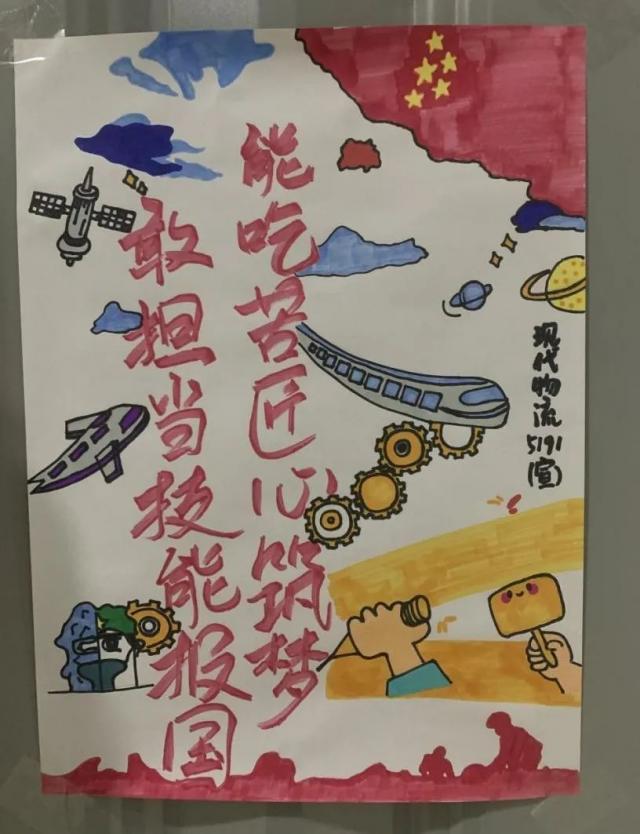 能吃苦匠心筑梦
敢担当技能报国
现代物流
5191
(宣)